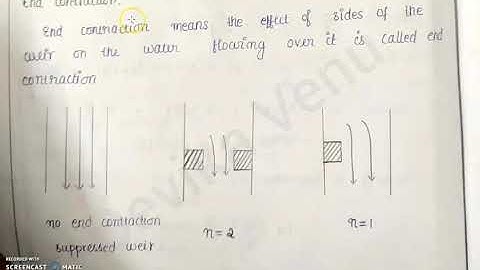 End contraction.
End contraction means the effect of sides of the
weir on the water flowing over it is called end
contraction
no end contraction
suppressed weir
n=2
n=1
RECORDED WITH
SCREENCAST MATIC